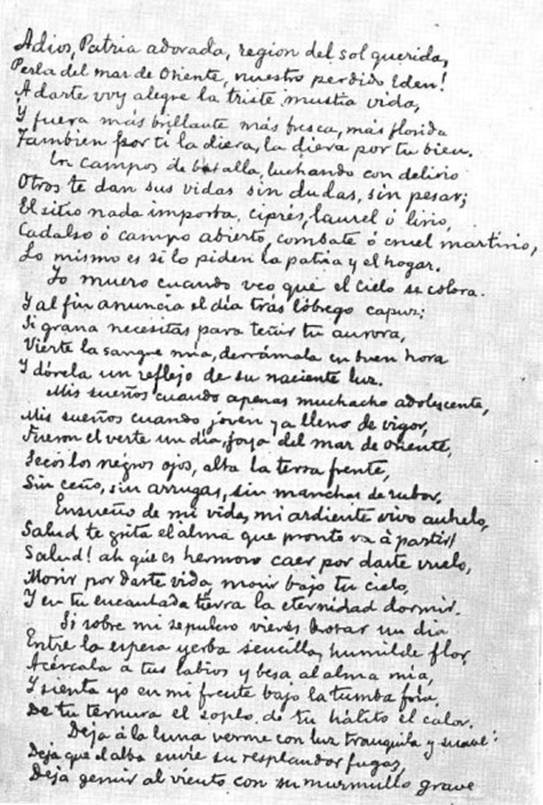 Adios, Patria adorada, region del sol querida,
Perla del mar de Oriente, nuestro perdido Eden!
A darte voy alegre la triste mustia vida,
Y fuera más brillante más fresca, más florida
Tambien por tí la diera, la diera por tu bien.
En campos de batalla, luchando con delirio
Otros te dan sus vidas sin dudas, sin pesar;
El sitio nada importa, ciprés, laurel ó lirio,
Cadalso ó campo abierto, combate ó cruel martirio,
Lo mismo es si lo piden la patria y el hogar.
Yo muero cuando veo que el cielo se colora.
Y al fin anuncia el día trás lóbrego capuz;
Si grana necesitas para teñir tu aurora,
Vierte la sangre mía, derrámala en buen hora
Y dórela un reflejo de su naciente luz.
Mis sueños cuando apenas muchacho adolescente,
Mis sueños cuando joven ya lleno de vigor,
Fueron el verte un día, joya del mar de oriente,
Secos los negros ojos, alta la tersa frente,
Sin ceño, sin arrugas, sin manchas de rubor,
Ensueño de mi vida, mi ardiente vivo anhelo,
Salud te grita el alma que pronto va á partir!
Salud! ah que es hermoso caer por darte vuelo,
Morir por darte vida, morir bajo tu cielo,
Y en tu encantada tierra la eternidad dormir.
Si sobre mi sepulcro vieres brotar un dia
Entre la espesa yerba sencilla, humilde flor,
Acércala a tus labios y besa al alma mía,
Y sienta yo en mi frente bajo la tumba fría.
De tu ternura el soplo, de tu hálito el calor.
Deja á la luna verme con luz tranquila y suave:
Deja que el alba envíe su resplandor fugaz,
Deja gemir al viento con su murmullo grave